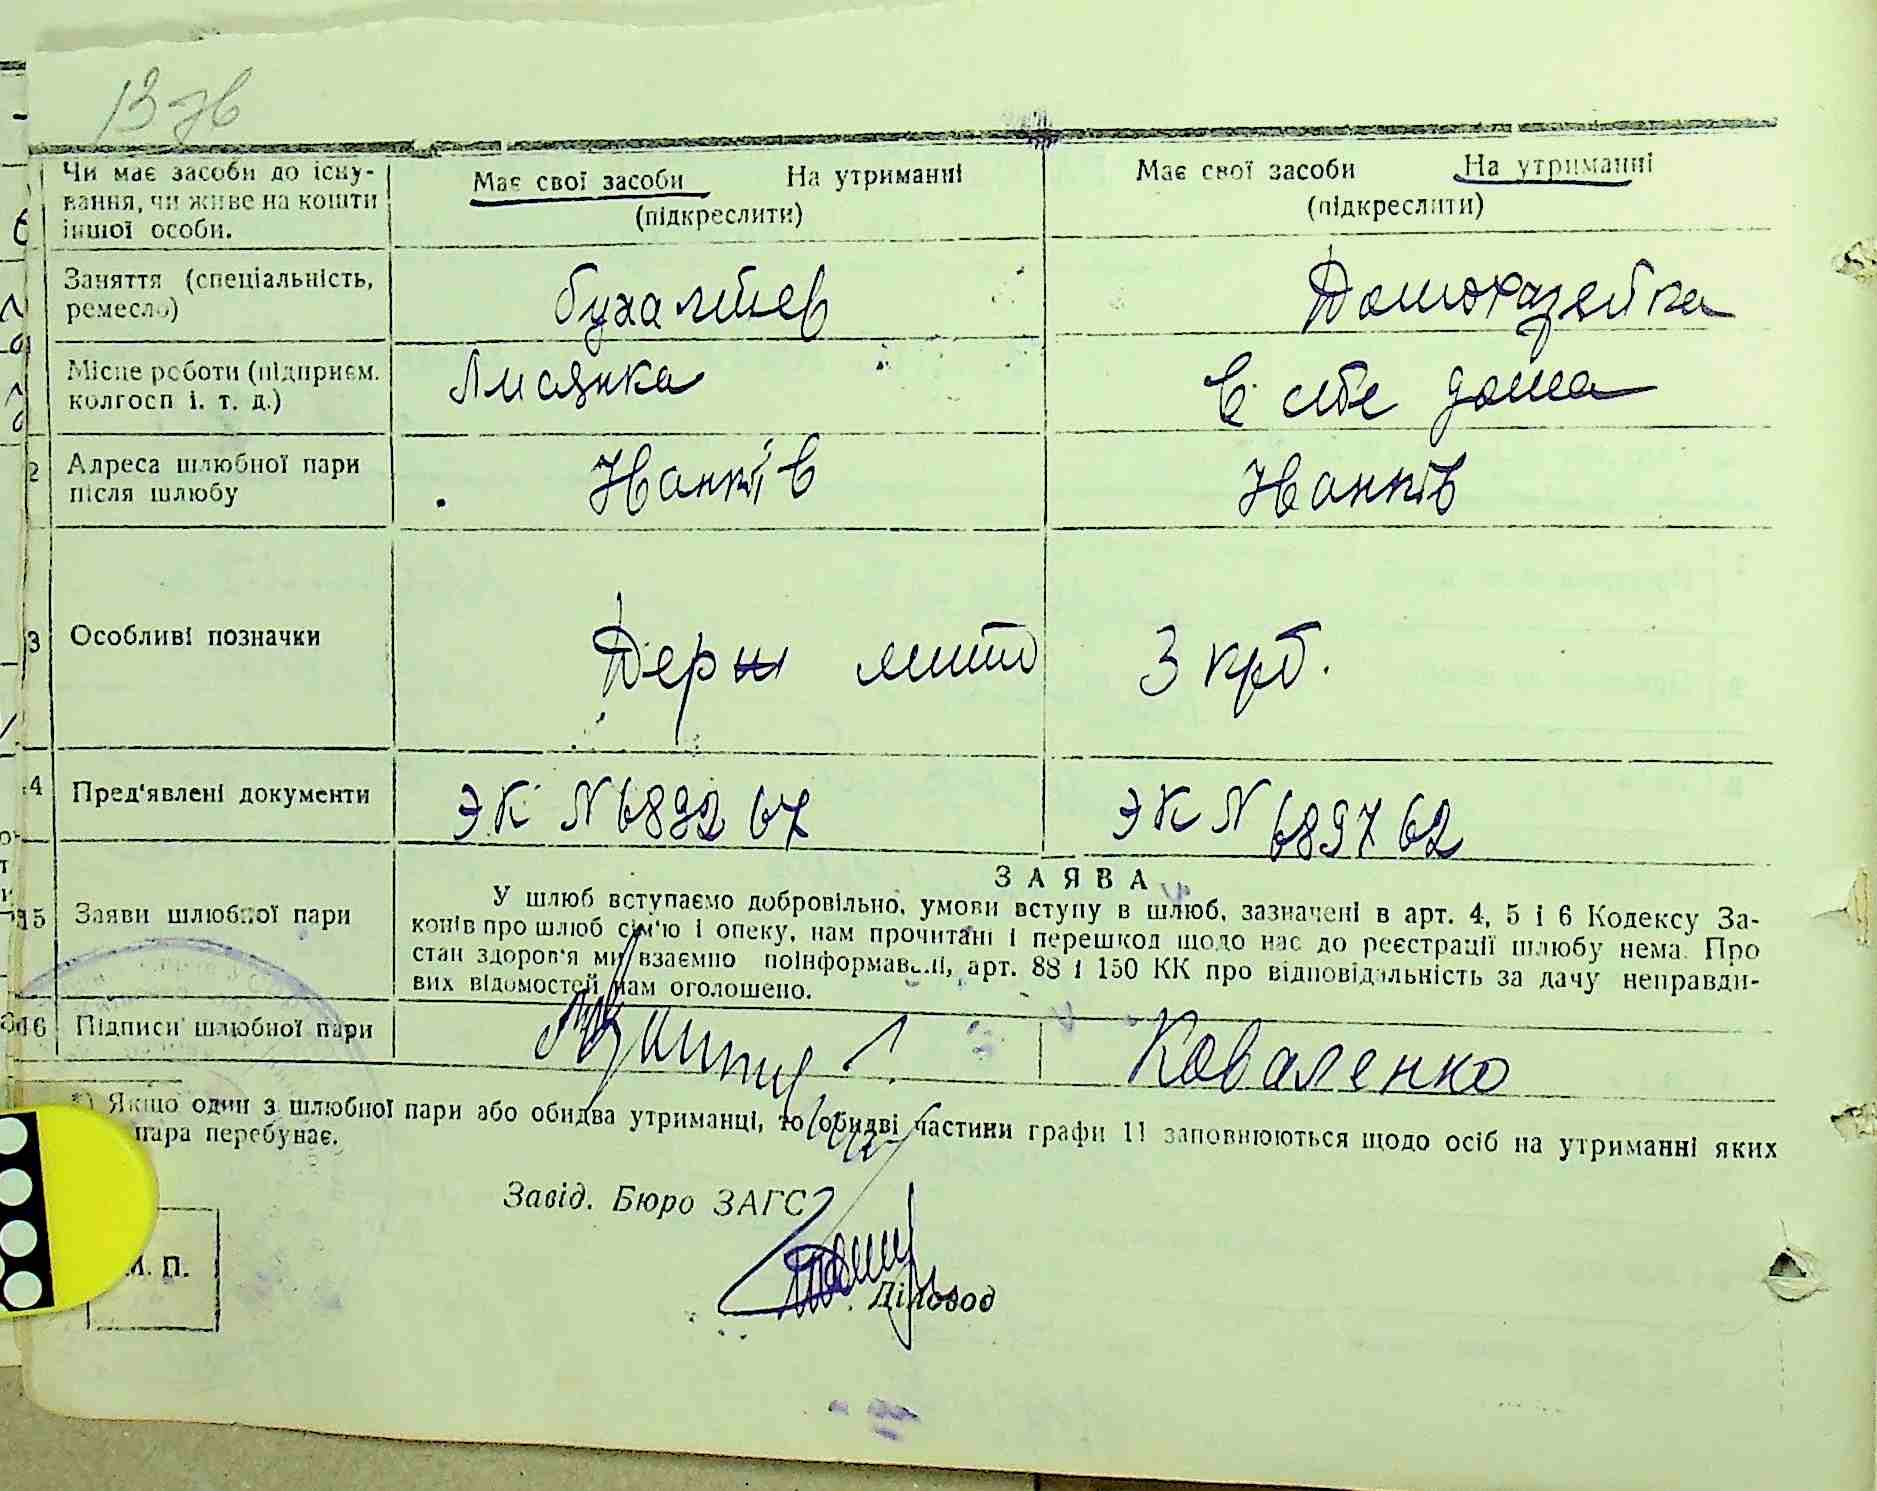 13
Чи має засоби до існу-
вання, чи живе на кошти
іншої особи.
Має свої засоби На утриманні
(підкреслити)
Має свої засоби На утриманні
(підкреслити)
Заняття (спеціальність,
ремесло)
бухалтер
Домохазяйка
Місце роботи (підприєм.
колгосп і. т. д.)
Лисянка
В себе дома
2 Адреса шлюбної пари
після шлюбу
Нанків
Нанків
3 Особливі позначки
Держ мито 3 крб.
4 Пред'явлені документи
ЭК N 689267
ЭК N 689762
15 Заяви шлюбної пари
ЗАЯВА
У шлюб вступаємо добровільно, умови вступу в шлюб, зазначені в арт. 4, 5 і 6 Кодексу За-
конів про шлюб сім'ю і опеку, нам прочитані і перешкод щодо нас до реєстрації шлюбу нема. Про
стан здоров'я ми взаємно поінформавані, арт. 88 і 150 КК про відповідальність за дачу неправди-
вих відомостей нам оголошено.
16 Підписи шлюбної пари
Коваленко
*) Якщо один з шлюбної пари або обидва утриманці, то обидві частини графи 11 заповнюються щодо осіб на утриманні яких
пара перебуває.
Завід. Бюро ЗАГС
М. П.
Діловод